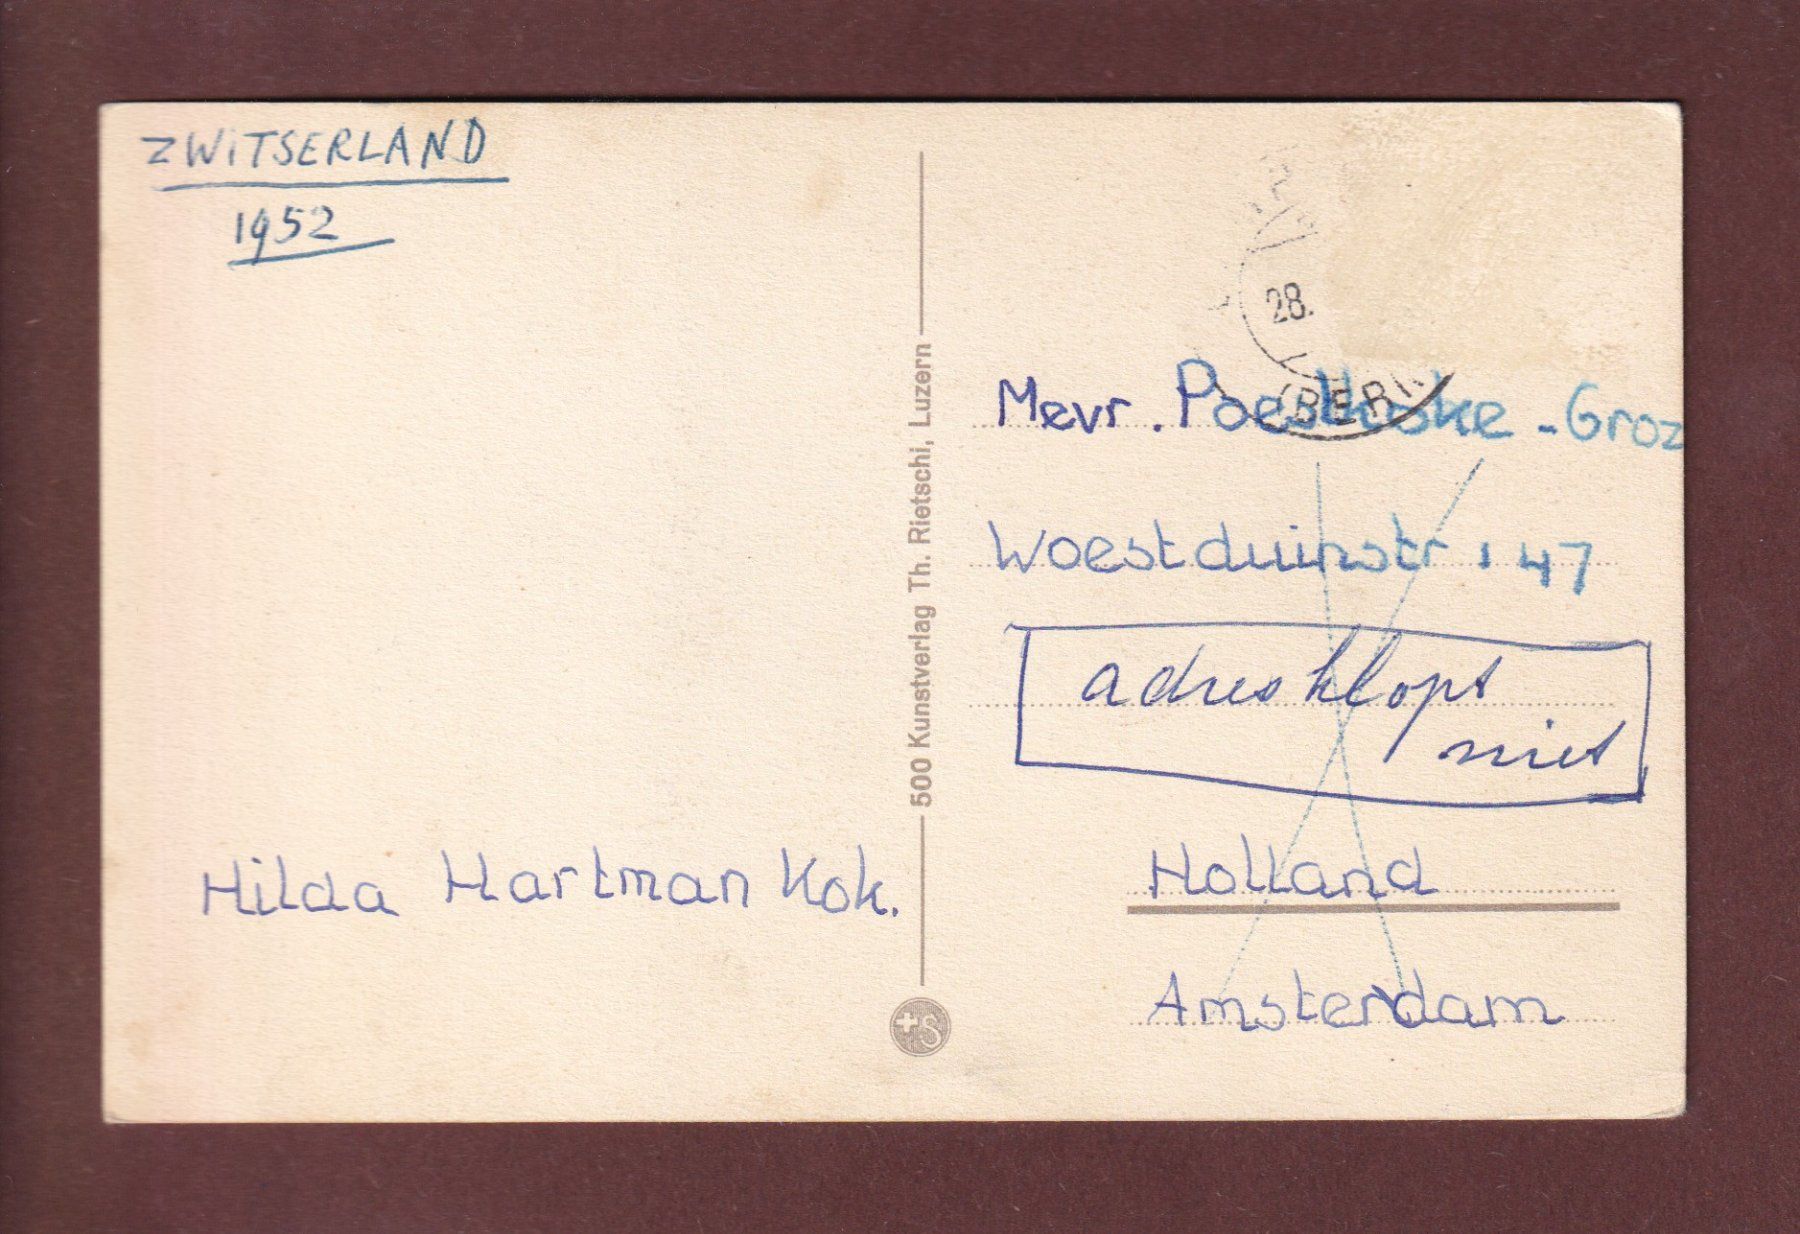 ZWITSERLAND
1952
28.
(BERN
Mevr. - Groz
Woestduinstr. 47
adres klopt
niet
Holland
Amsterdam
Hilda Hartman Kok.
500 Kunstverlag Th. Rietschi, Luzern